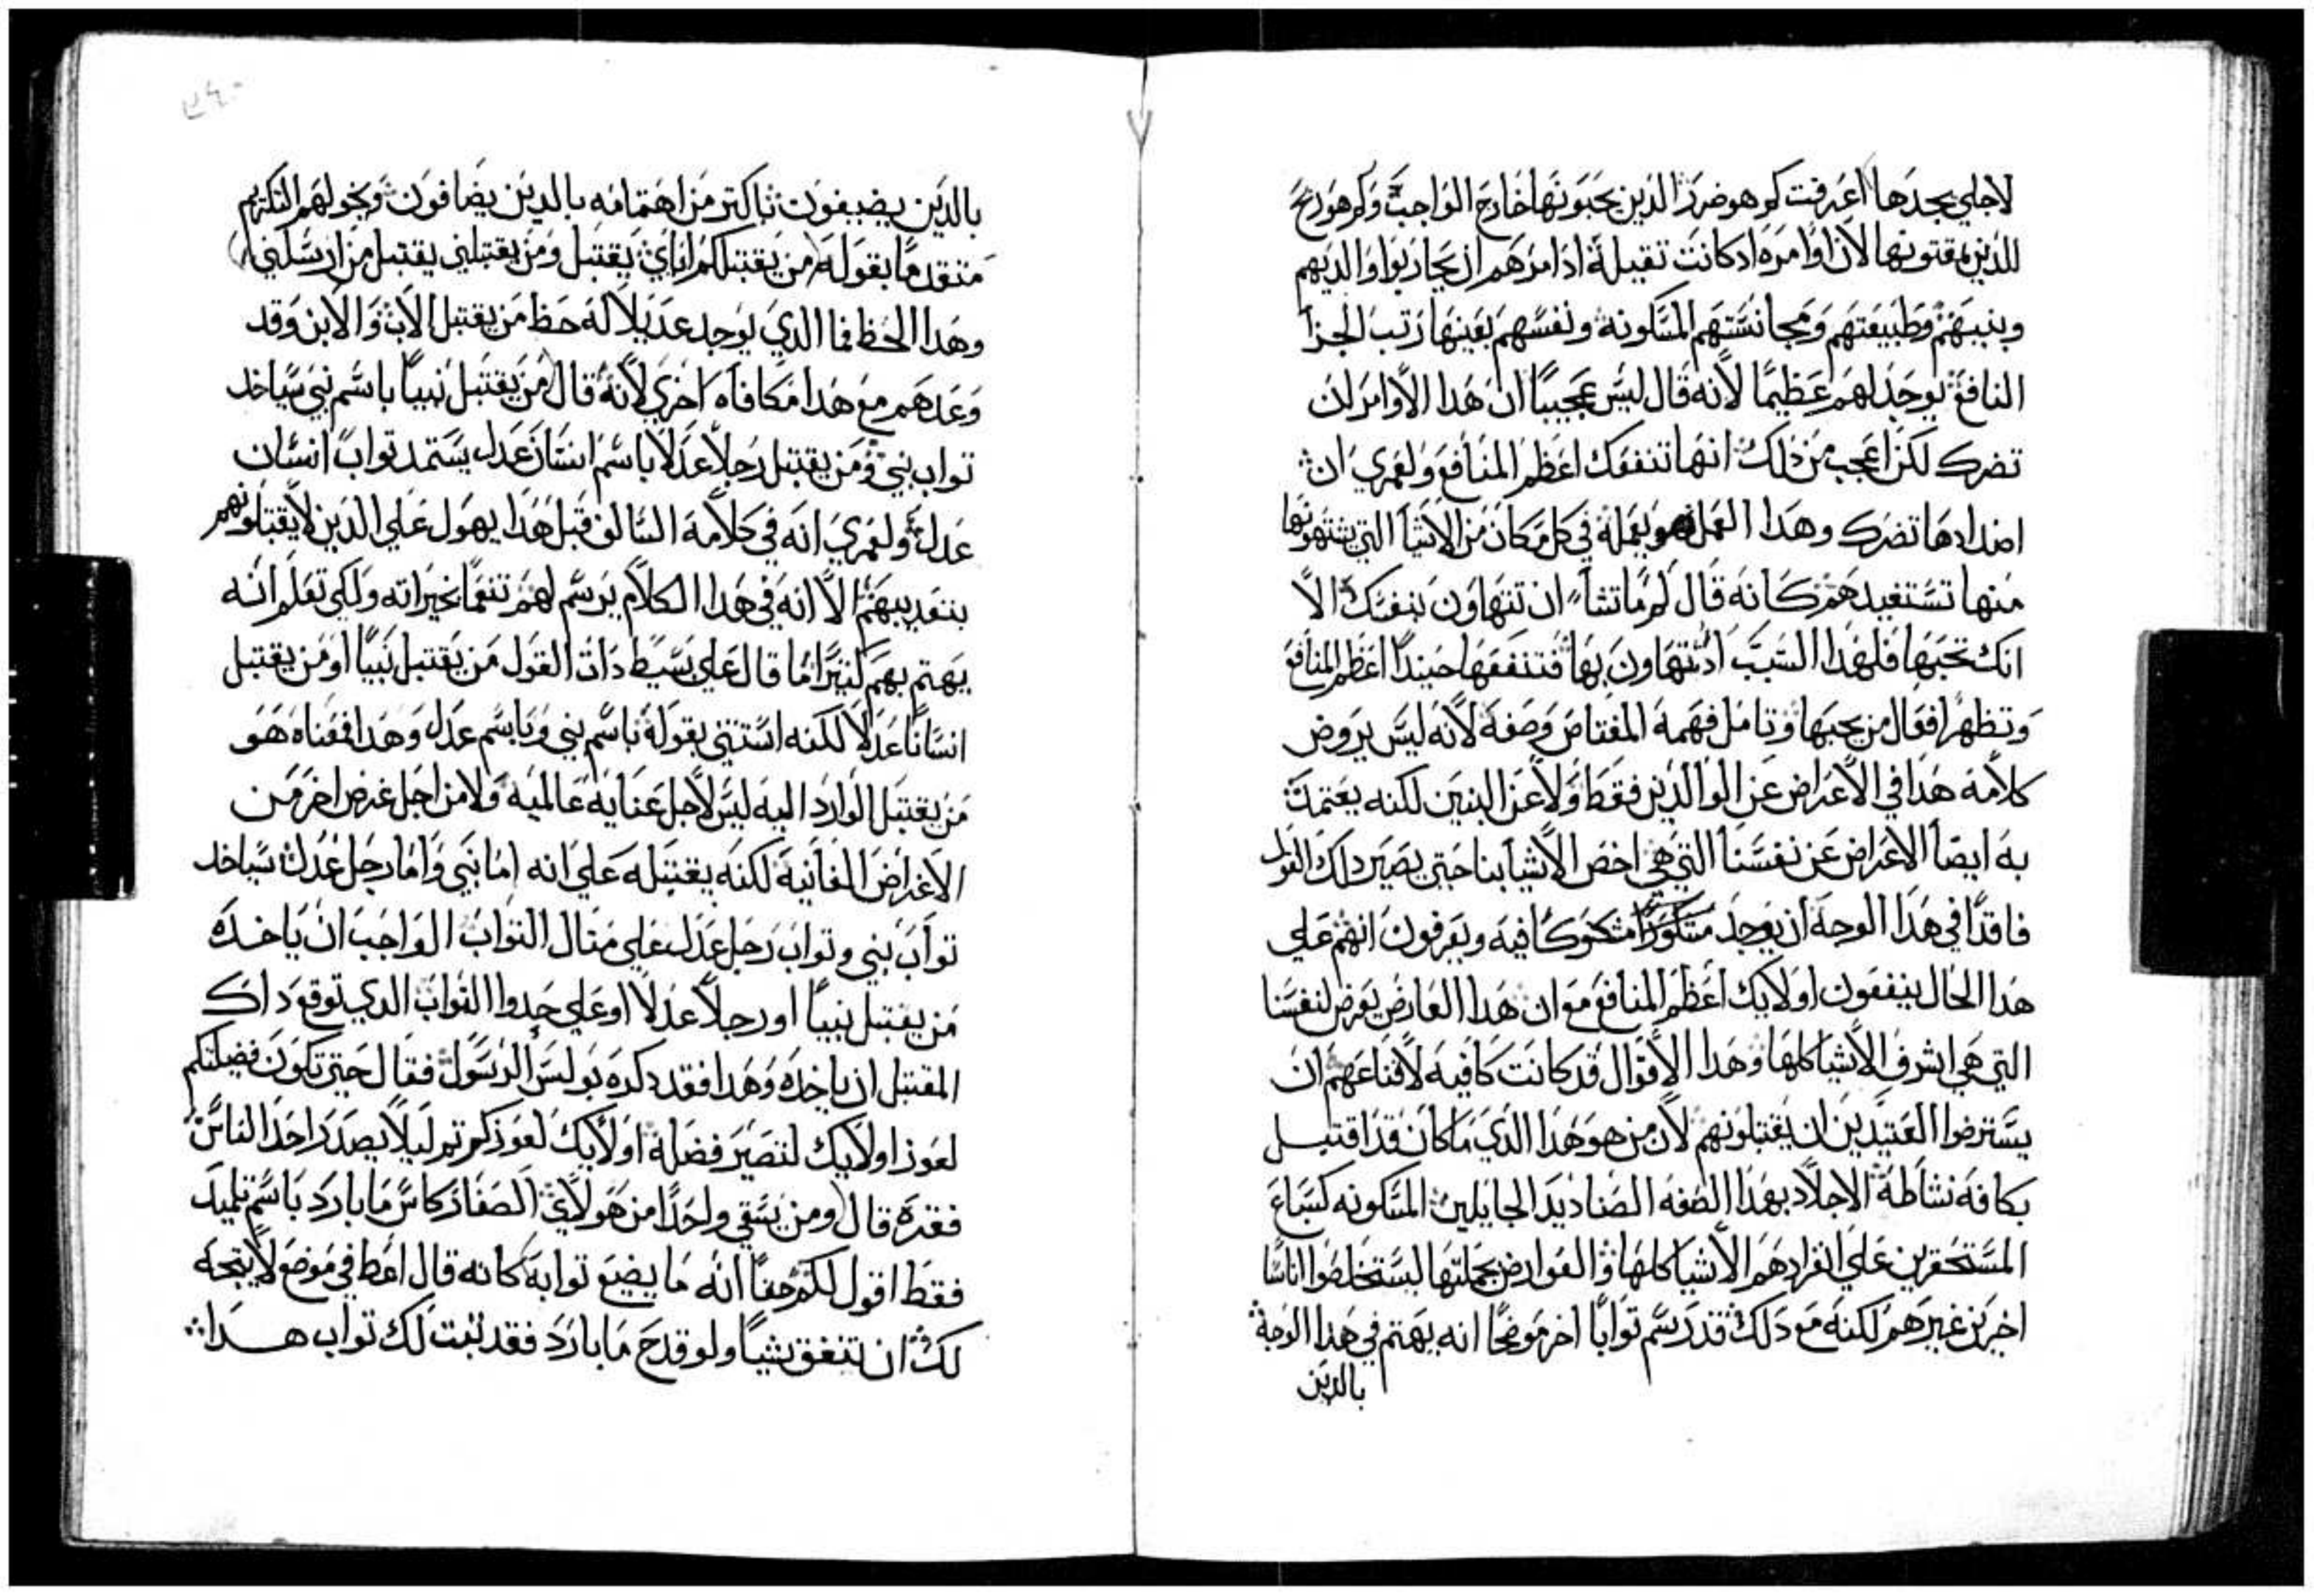 لاجلي يجدها اعرفت كم هو ضرر الذين يحبونها خارج الواجب وكم هو ربح
للذين يمقتونها لان اوامره اذ كانت تقيلة اذ امرهم ان يحاربوا والديهم
وبنيهم وطبيعتهم ومجانستهم المسكونه ونفسهم بعينها رتب الجزا
النافع يوجد لهم عظيمًا لانه قال ليس عجيبًا ان هذا الاوامر لن
تضرك لكن اعجب من ذلك انها تنفعك اعظم المنافع ولعمري ان
اضدادها تضرك وهذا العمل هو يعمله في كل مكان من الاشيا التي يشتهونها
منها تستفيدهم كانه قال لم ما تشا ان تتهاون بنفسك الا
انك تحبها فلهذا السبب اذ تتهاون بها فتنفعها حينيدًا اعظم المنافع
وتظهر افعال من يحبها وتامل فهمه المقتاص وصفه لانه ليس يروض
كلامه هذا في الاعراض عن الوالدين فقط ولا عن البنين لكنه يعتمد
به ايضًا الاعراض عن نفسنا التي هي اخص الاشيا بنا حتى يصير ذلك القول
فاقدًا في هذا الوجه ان يوجد مشكوكًا فيه ويعرفون انهم على
هذا الحال ينفعون اولايك اعظم المنافع مع ان هذا العارض يعرض لنفسنا
التي هي اشرف الاشيا كلها وهذا الاقوال قد كانت كافيه لاقناعهم ان
يسترضوا العتيدين ان يقتبلونهم لان من هو هذا الذي ما كان قد اقتبل
بكافة نشاطة الاجلاد بهذا الصفه الصناديد الجايلين المسكونه كسباع
المستحقرين على انفرادهم الاشيا كلها والعوارض بجملتها ليستخلصوا اناسًا
اخرين غيرهم لكنه مع ذلك قد رسم توابًا اخر موضحًا انه يهتم في هذا الوجه
بالدين
بالدين يضيفون باكتر من اهتمامه بالدين يضافون ويخولهم التكريم
متقدمًا بقوله (من يقتبلكم اياي يقتبل ومن يقتبلني يقتبل من ارسلني)
وهذا الحظ فما الذي يوجد عديلا له حظ من يقتبل الاب والابن وقد
وعدهم مع هذا مكافاه اخري لانه قال (من يقتبل نبيًا باسم نبي سياخد
تواب نبي ومن يقتبل رجلا عدلا باسم انسان عدل يستمد تواب انسان
عدل ولعمري انه في كلامه السالف قبل هذا يهول علي الذين لا يقتبلونهم
بتعديبهم الا انه في هذا الكلام يرسم لهم تنعمًا بخيراته ولكي تعلم انه
يهتم بهم كتيرًا ما قال علي بسيط ذات القول من يقتبل نبيًا او من يقتبل
انسانًا عدلا لكنه استتني بقوله باسم نبي وباسم عدل وهذا فمعناه هو
من يقتبل الوارد اليه ليس لاجل عنايه عالميه ولا من اجل غرض اخر من
الاغراض الفانيه لكنه يقتبله علي انه اما نبي واما رجل عدل سياخد
تواب نبي وتواب رجل عدل علي متال التواب الواجب ان ياخده
من يقتبل نبيًا او رجلا عدلا او علي حدوا التواب الدي توقع داك
المقتبل ان ياخده وهذا فقد دكره بولس الرسول فقال حتي تكون فضيلتكم
لعوز اولايك لتصير فضلة اولايك لعوزكم تم ليلا يصدر احد الناس
فقره قال (ومن يسقي واحدًا من هولاي الصغار كاس ما بارد باسم تلميد
فقط اقول لكم حقًا انه ما يضيع توابه) كانه قال اعط في موضع لا يتجه
لك ان تنفق شيًا ولو قدح ما بارد فقد تبت لك تواب هدا